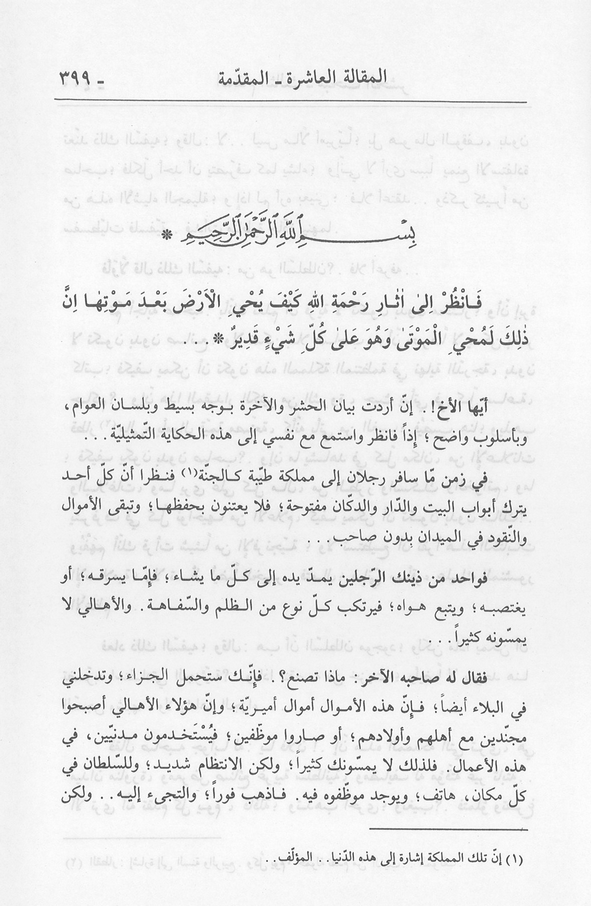 المقالة العاشرة ـ المقدّمة ـ ٣٩٩
بِسْمِ اللَّهِ الرَّحْمٰنِ الرَّحِيمِ *
فَانْظُرْ اِلىٰ اٰثَارِ رَحْمَةِ اللهِ كَيْفَ يُحْيِي الْاَرْضَ بَعْدَ مَوْتِهَا اِنَّ
ذٰلِكَ لَمُحْيِي الْمَوْتَىٰ وَهُوَ عَلىٰ كُلِّ شَيْءٍ قَدِيرٌ * ...
أيّها الأخ!. إنّ أردت بيان الحشر والآخرة بوجه بسيط وبلسان العوام،
وبأسلوب واضح؛ إذاً فانظر واستمع مع نفسي إلى هذه الحكاية التمثيليّة...
في زمن مّا سافر رجلان إلى مملكة طيّبة كالجنّة(١) فنظرا أنّ كلّ أحد
يترك أبواب البيت والدّار والدكّان مفتوحة؛ فلا يعتنون بحفظها؛ وتبقى الأموال
والنّقود في الميدان بدون صاحب...
فواحد من ذينك الرّجلين يمدّ يده إلى كلّ ما يشاء؛ فإمّا يسرقه؛ أو
يغتصبه؛ ويتبع هواه؛ فيرتكب كلّ نوع من الظلم والسَّفاهة. والأهالي لا
يمسّونه كثيراً...
فقال له صاحبه الآخر: ماذا تصنع؟. فإنّك ستحمل الجزاء؛ وتدخلني
في البلاء أيضاً؛ فإنّ هذه الأموال أموال أميريّة؛ وإنّ هؤلاء الأهالي أصبحوا
مجنّدين مع أهلهم وأولادهم؛ أو صاروا موظّفين؛ فيُسْتَخدمون مدنيّين، في
هذه الأعمال. فلذلك لا يمسّونك كثيراً؛ ولكن الانتظام شديد؛ وللسّلطان في
كلّ مكان، هاتف؛ ويوجد موظّفوه فيه. فاذهب فوراً؛ والتجىء إليه.. ولكن
(١) إنّ تلك المملكة إشارة إلى هذه الدّنيا.. المؤلّف..